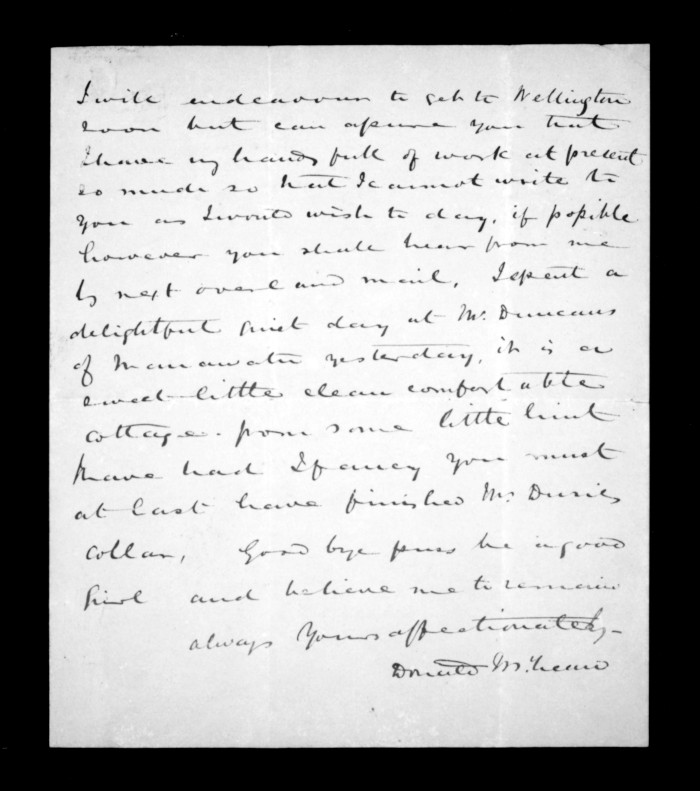 I will endeavour to get to Wellington
soon but can assure you that
I have my hands full of work at present
so much so that I cannot write to
you as I would wish to day, if possible
however you shall hear from me
by next overland mail, I spent a
delightful quiet day at Mr. Duncans
of Manawatu yesterday, it is a
sweet little clean comfortable
cottage. from some little hint
I have had I fancy you must
at last have finished Mr Duries
collar, Good bye puss be a good
girl and believe me to remain
always Yours affectionately
Donald McLean